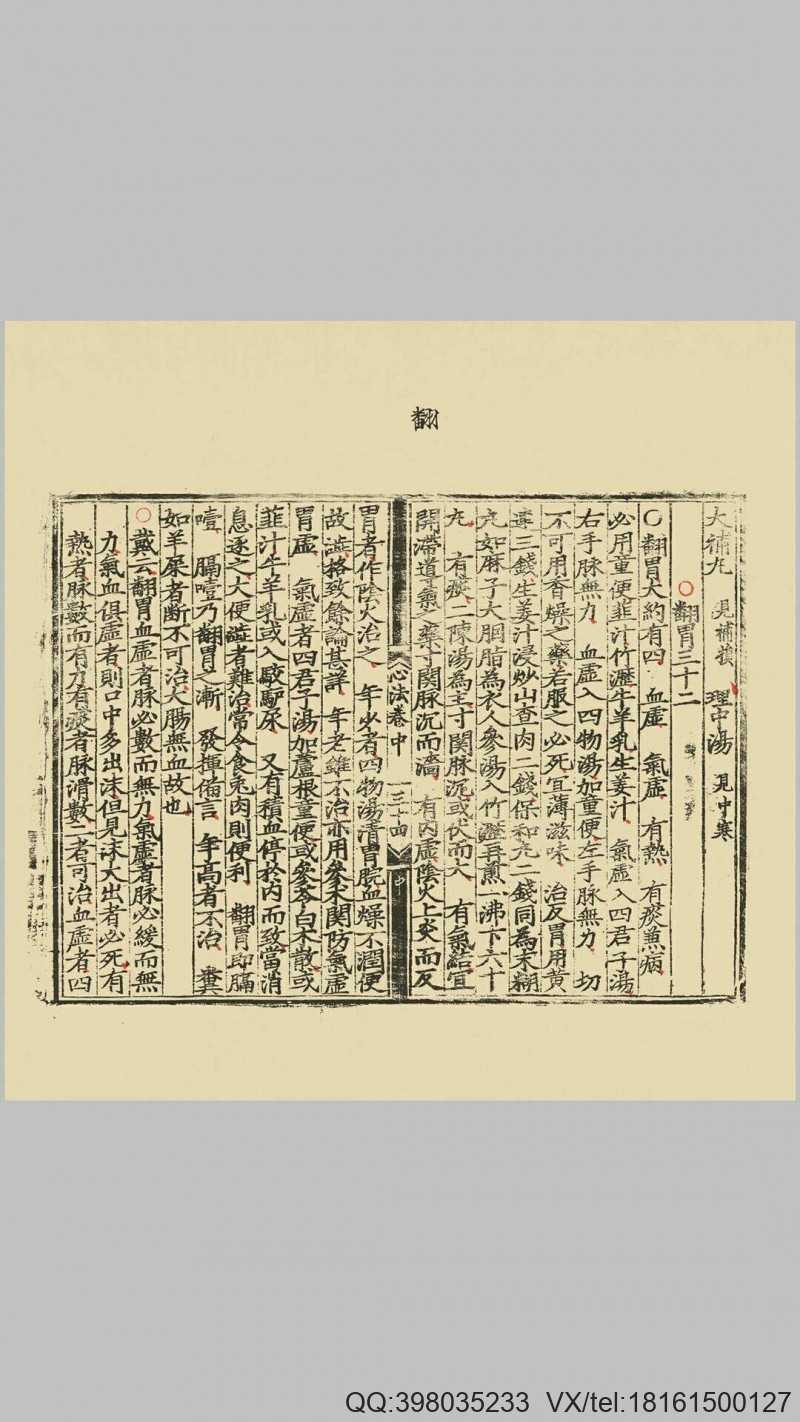 翻
大補丸 見補損 理中湯 見中寒
○翻胃三十二
○翻胃大約有四 血虛 氣虛 有熱 有痰兼病
必用童便韭汁竹瀝牛羊乳生姜汁 氣虛入四君子湯
右手脉無力 血虛入四物湯加童便左手脉無力 切
不可用香燥之藥若服之必死宜薄滋味 治反胃用黄
連三錢生姜汁浸炒山查肉二錢保和丸二錢同為末糊
丸如麻子大胭脂為衣人參湯入竹瀝再煎一沸下六十
丸 有痰二陳湯為主寸関脉沉或伏而大 有氣結宜
開滯導氣之藥寸関脉沉而濇 有内虛陰火上炎而反
心法卷中 三十四
胃者作陰火治之 年少者四物湯清胃脘血燥不潤便
故澁格致餘論甚詳 年老雖不治亦用參术関防氣虛
胃虛 氣虛者四君子湯加蘆根童便或參苓白术散或
韭汁牛羊乳或入駁驢尿 又有積血停於内而致當消
息逐之大便澁者難治常令食兎肉則便利 翻胃即膈
噎 膈噎乃翻胃之漸 發揮備言 年高者不治 糞
如羊屎者断不可治大腸無血故也
○戴云翻胃血虛者脉必數而無力氣虛者脉必緩而無
力氣血俱虛者則口中多出沫但見沫大出者必死有
熱者脉數而有力有痰者脉滑數二者可治血虛者四
QQ:398035233 VX/tel:18161500127